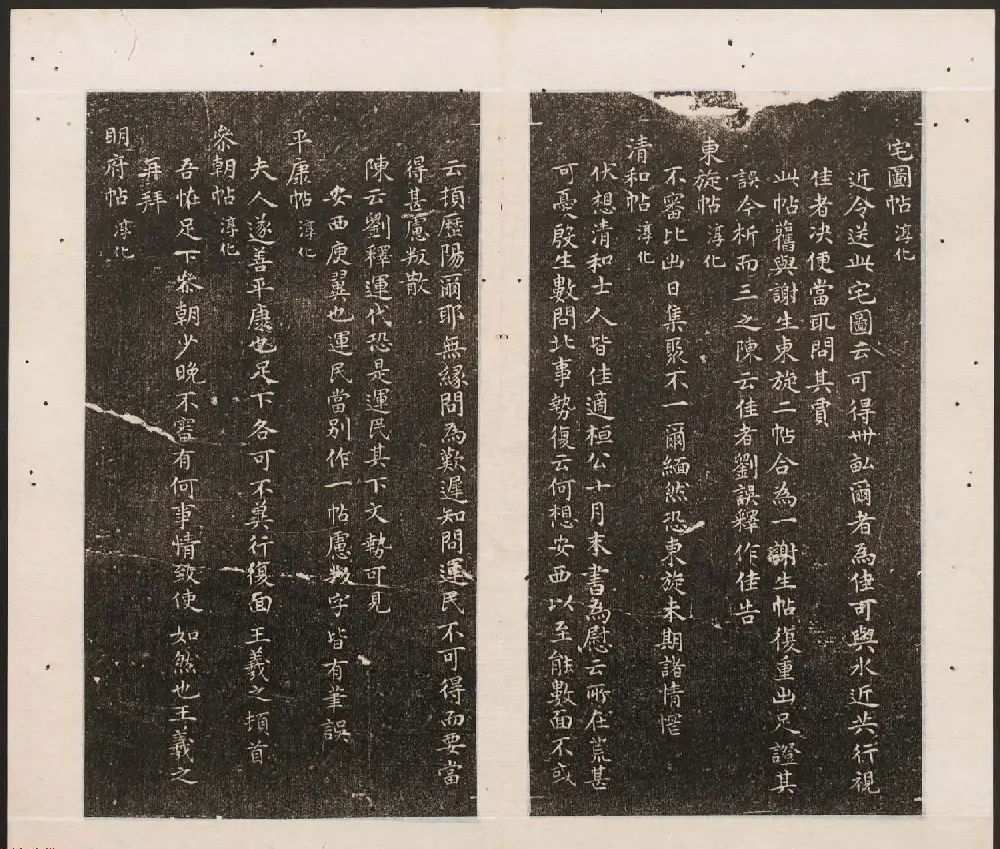 宅圖帖 淳化
近令送此宅圖云可得卅畝爾者為佳可與水近共行視
佳者决便當取問其賈
此帖舊與謝生東旋二帖合為一謝生帖復重出足證其
誤今析而三之陳云佳者劉誤釋作佳告
東旋帖 淳化
不審比出日集聚不一爾緬然恐東旋未期諸情慳
清和帖 淳化
伏想清和士人皆佳適桓公十月末書為慰云所在荒甚
可憂殷生數問北事勢復云何想安西以至能數面不或
云頓歷陽爾耶無緣問為歎遲知問運民不可得而要當
得甚慮叛散
陳云劉釋運代恐是運民其下文勢可見
安西庾翼也運民當別作一帖慮叛字皆有筆誤
平康帖 淳化
夫人遂善平康也足下各可不冀行復面王羲之頓首
參朝帖 淳化
吾怪足下參朝少晚不審有何事情致使如然也王羲之
再拜
明府帖 淳化